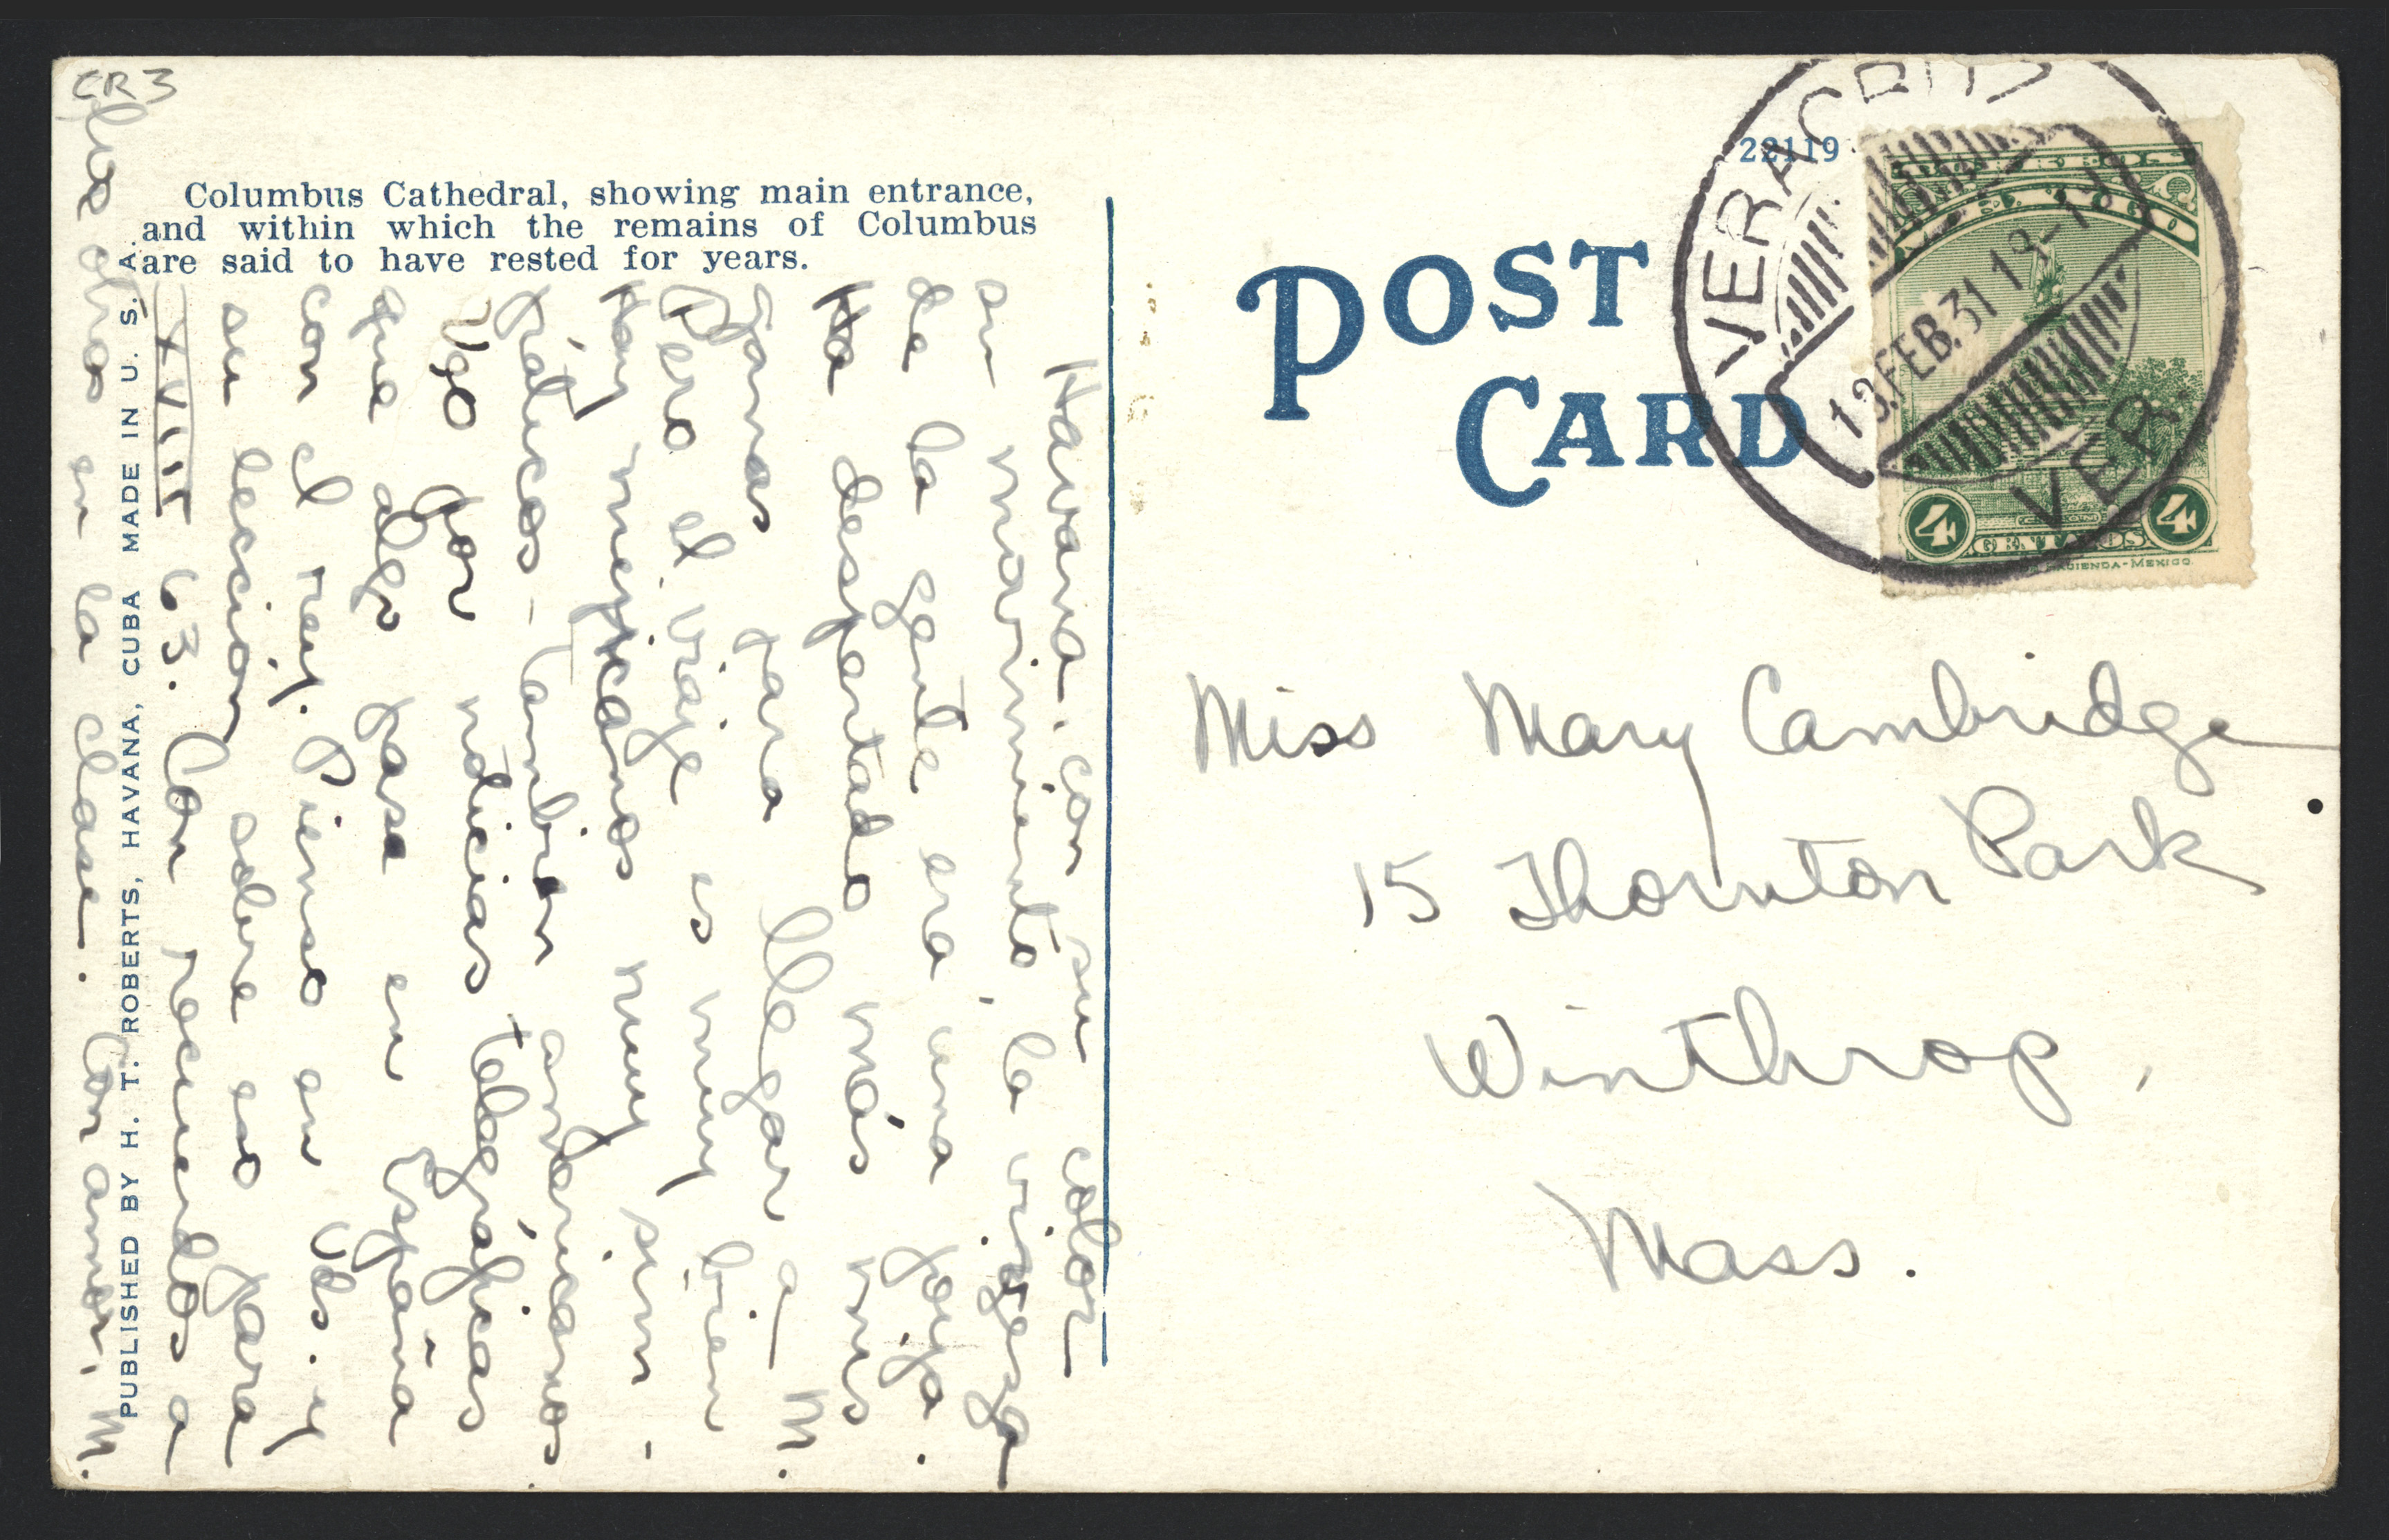 CR3
Columbus Cathedral, showing main entrance,
and within which the remains of Columbus
are said to have rested for years.
Havana, con su color
su movimiento, la viveza
de la gente era una joya.
Ha despertado más mis
ganas para llegar a M.
Pero el viaje es muy bien
Hay mejicanos muy sim-
páticos - tambien americanos.
Veo por noticias telegráficas
que algo pasa en España
con el rey. Pienso en Vds. y
su leccion sobre eso para
XVIII 63. Con recuerdos a
los otros en la clase. Con amor, M.
PUBLISHED BY H. T. ROBERTS, HAVANA, CUBA MADE IN U. S. A.
22119
POST
CARD
VERACRUZ
13.FEB.31 19-
VER.
4 CENTAVOS 4
HACIENDA-MEXICO.
Miss Mary Cambridge
15 Thornton Park
Winthrop,
Mass.